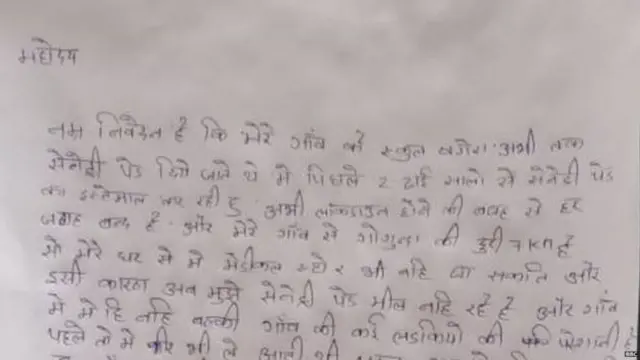 महोदय
नम्र निवेदन है कि मेरे गाँव के स्कुल वगेरा अभी तक
सेनेट्री पेड दिये जाते थे मे पिछले 2 ढाई सालो से सेनेट्री पेड
का इस्तेमाल कर रही हु अभी लॉकडाउन होने की वजह से हर
जगह बन्द है. और मेरे गाँव से गोगुन्दा की दुरी 7 km है
सो मेरे घर से मे मेडीकल स्टोर भी नहि जा सकति और
इसी कारण अब मुझे सेनेट्री पेड मील नहि रहे है और गाँव
मे मे हि नहि बल्की गाँव की कई लडकियो की यही परेशानी है
पहले तो मे फीर भी ले आती थी